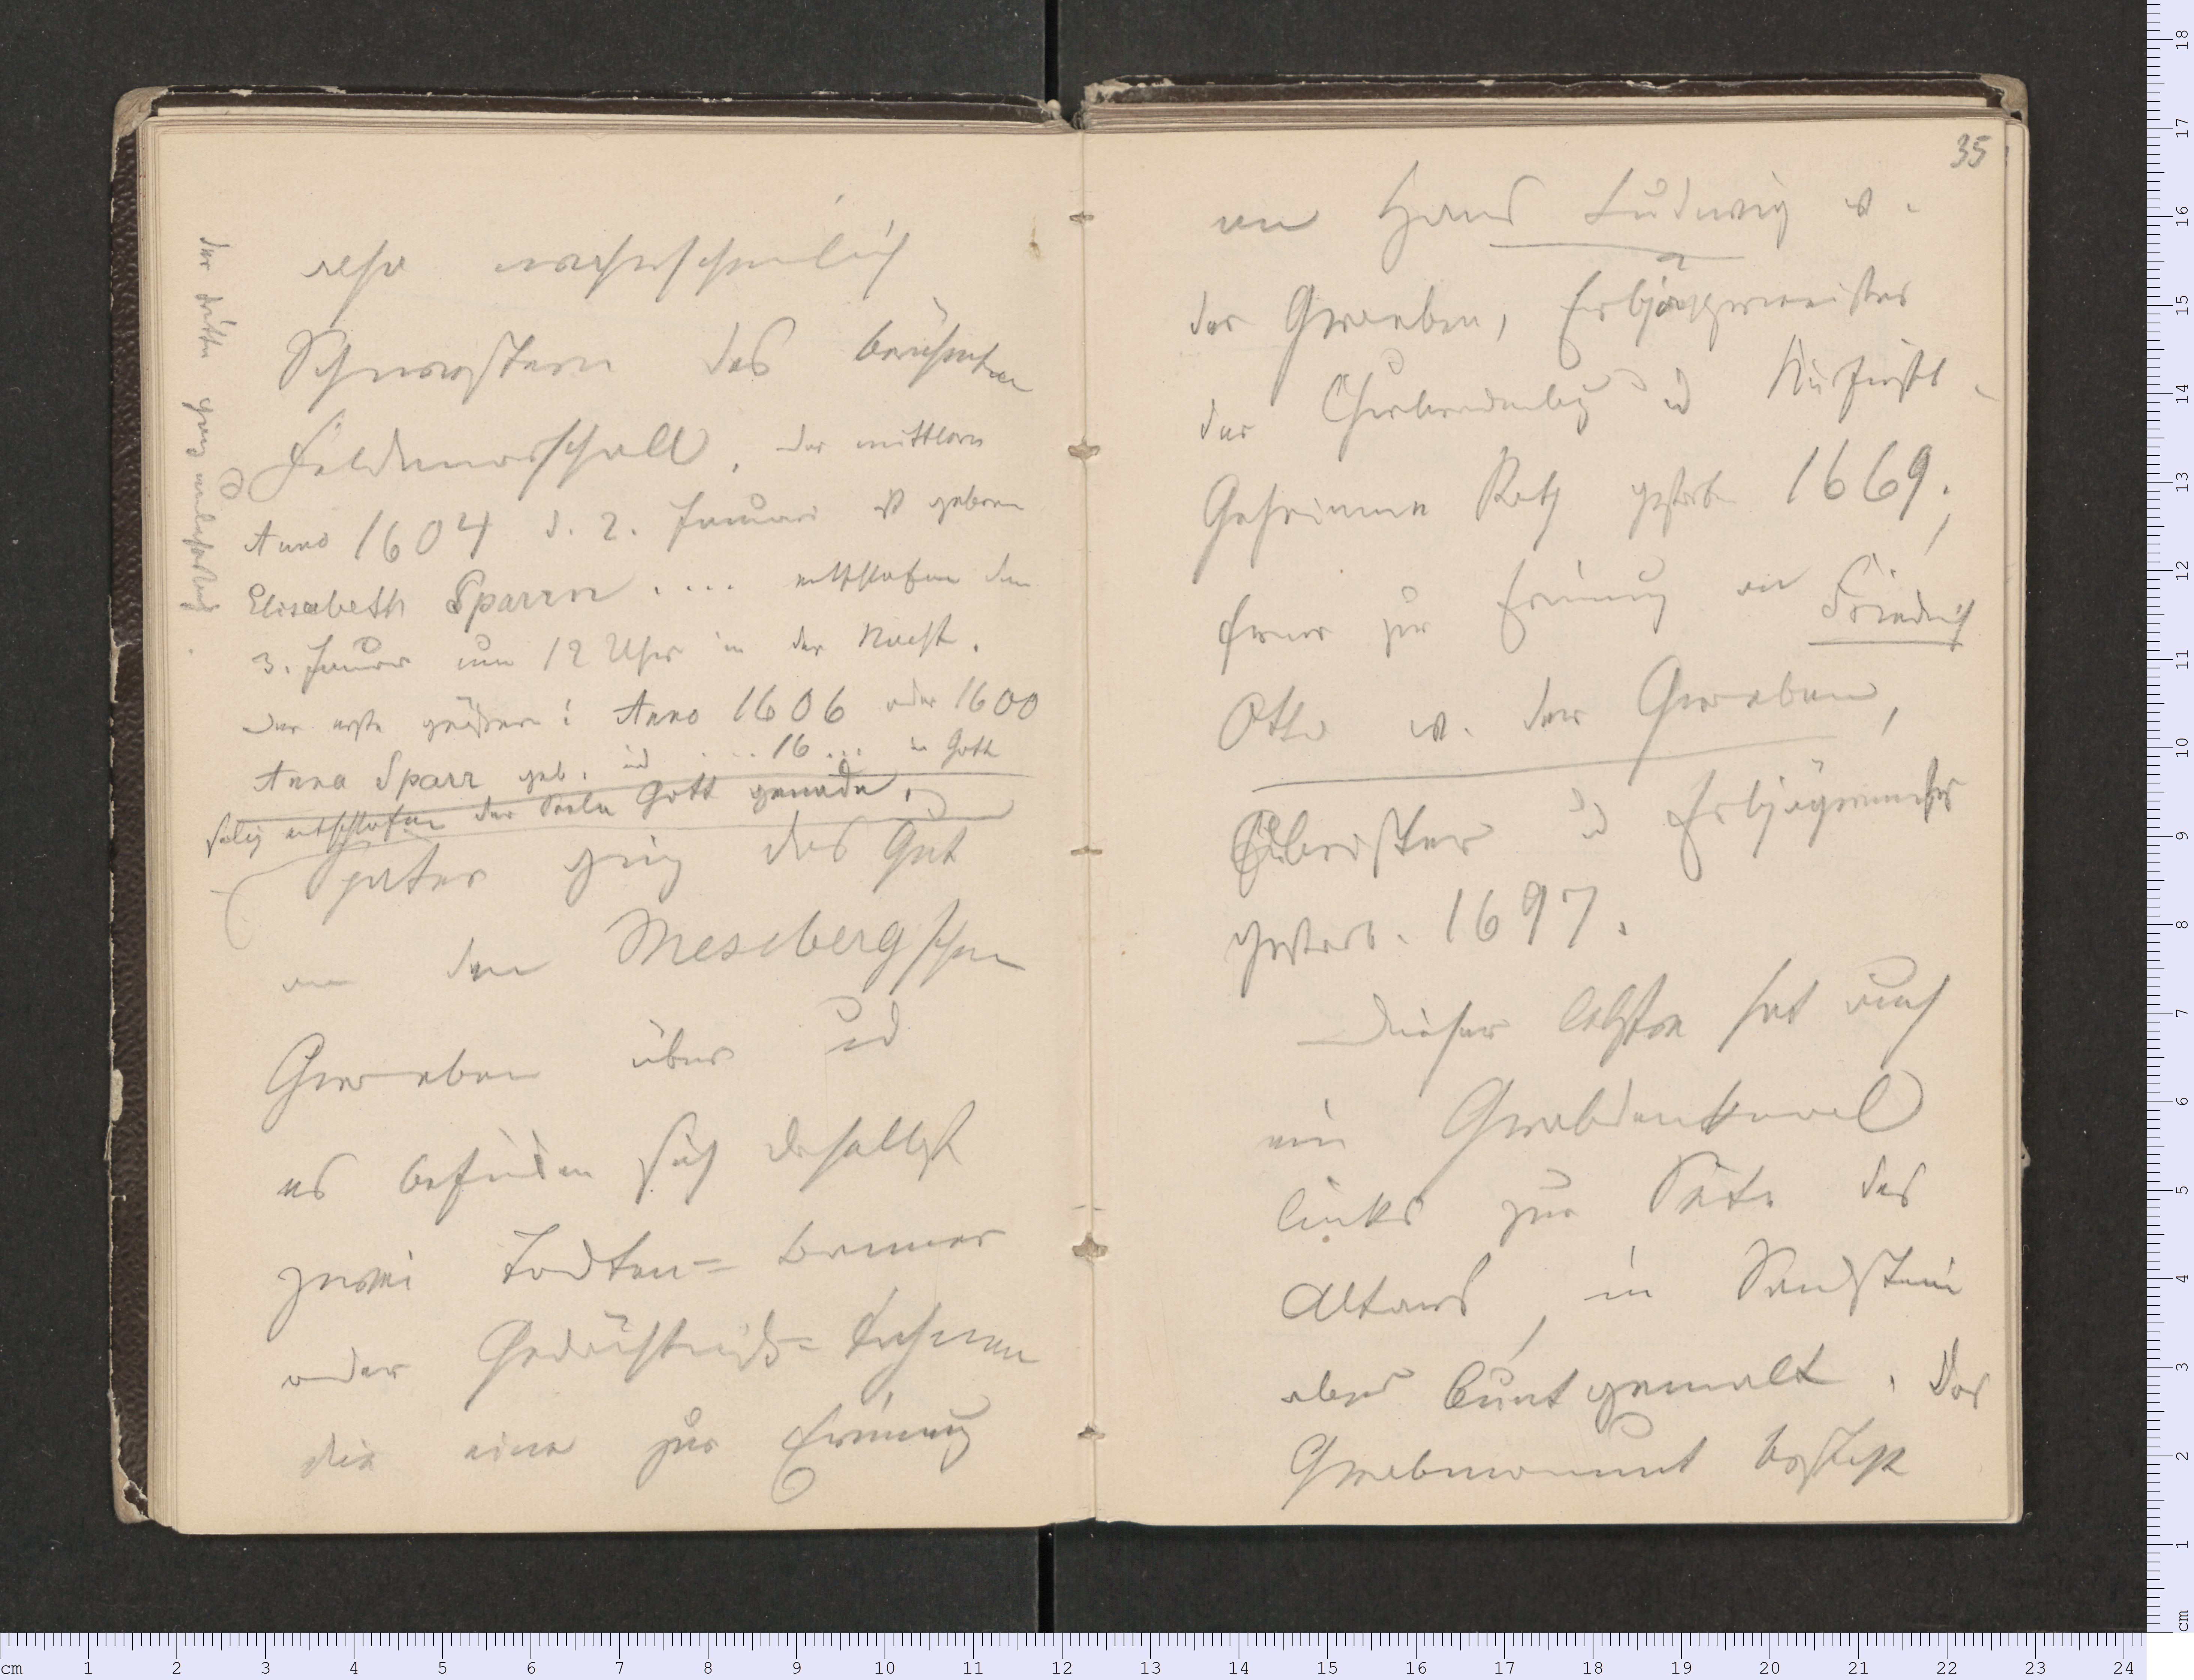 also wahrscheinlich
Schwestern des berühmten
Feldmarschall. Der mittlere
Anno 1604 d. 2. Januari ist geboren
Elisabeth Sparrn .... entschlafen den
3. Januar um 12 Uhr in der Nacht.
Der erste größere: Anno 1606 oder 1600
Anna Sparr geb. und ... 16... in Gott
selig entschlafen der Seele Gott genade.
Später ging das Gut
an den Meseberg'schen
Groeben über und
es befinden sich daselbst
zwei Todten=banner
oder Gedächtniß=fahnen
die eine zur Erinnrung
der dritte ganz unleserlich.
35
an Hans Ludwig v.
der Groeben, Erbjägermeister
der Churbrandenburg und Kurfürstl.
Geheimen Rath gestorben 1669;
ferner zur Erinnrung an Friedrich
Otto v. der Groeben,
Oberister und Erbjägermeister
gestorb. 1697.
Dieser letztre hat auch
ein Grabdenkmal
links zur Seite des
Altars, in Sandstein
aber bunt gemalt. Das
Grabmonument besteht